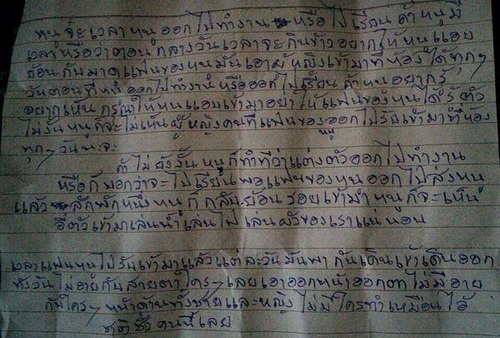 หนูจ๊ะเวลาหนูออกไปทำงาน หรือไปเรียน ถ้าหนูมี
เวลาหรือว่าตอนกลางวันเวลาจะกินข้าวอยากให้หนูแอบ
ย้อนกลับมาดูแฟนของหนูมันเอาผู้หญิงเข้ามาที่ห้องได้ทุกๆ
วันตอนที่หนูออกไปทำงานหรือออกไปเรียนถ้าหนูอยากรู้
อยากเห็น กรุณาให้หนูแอบเข้ามาอย่าให้แฟนของหนูได้รู้ตัว
ไม่งั้นหนูก็จะไม่เห็นผู้หญิงคนที่แฟนของหนูออกไปรับเข้ามาที่ห้อง
ทุกๆวันนะจ๊ะ
ถ้าไม่ยังงั้นหนูก็ทำทีว่าแต่งตัวออกไปทำงาน
หรือก็บอกว่าจะไปเรียนพอแฟนของหนูออกไปส่งหนู
แล้ว สักพักหนึ่งหนูก็กลับย้อนรอยเข้ามาหนูก็จะเห็น
อีตัวเข้ามาเล่นน้ำเล่นไปเล่นผัวของเราแน่นอน
เวลาแฟนหนูไปรับเข้ามาแล้วแต่ละวันมันพากันเดินเข้าเดินออก
ทั้งวันไม่อายกับสายตาใครๆเลยเอาออกหน้าออกตาไม่มีอาย
กันใครๆ หน้าด้านทั้งชายและหญิงไม่มีใครทำเหมือนไอ้
คนนี้เลย